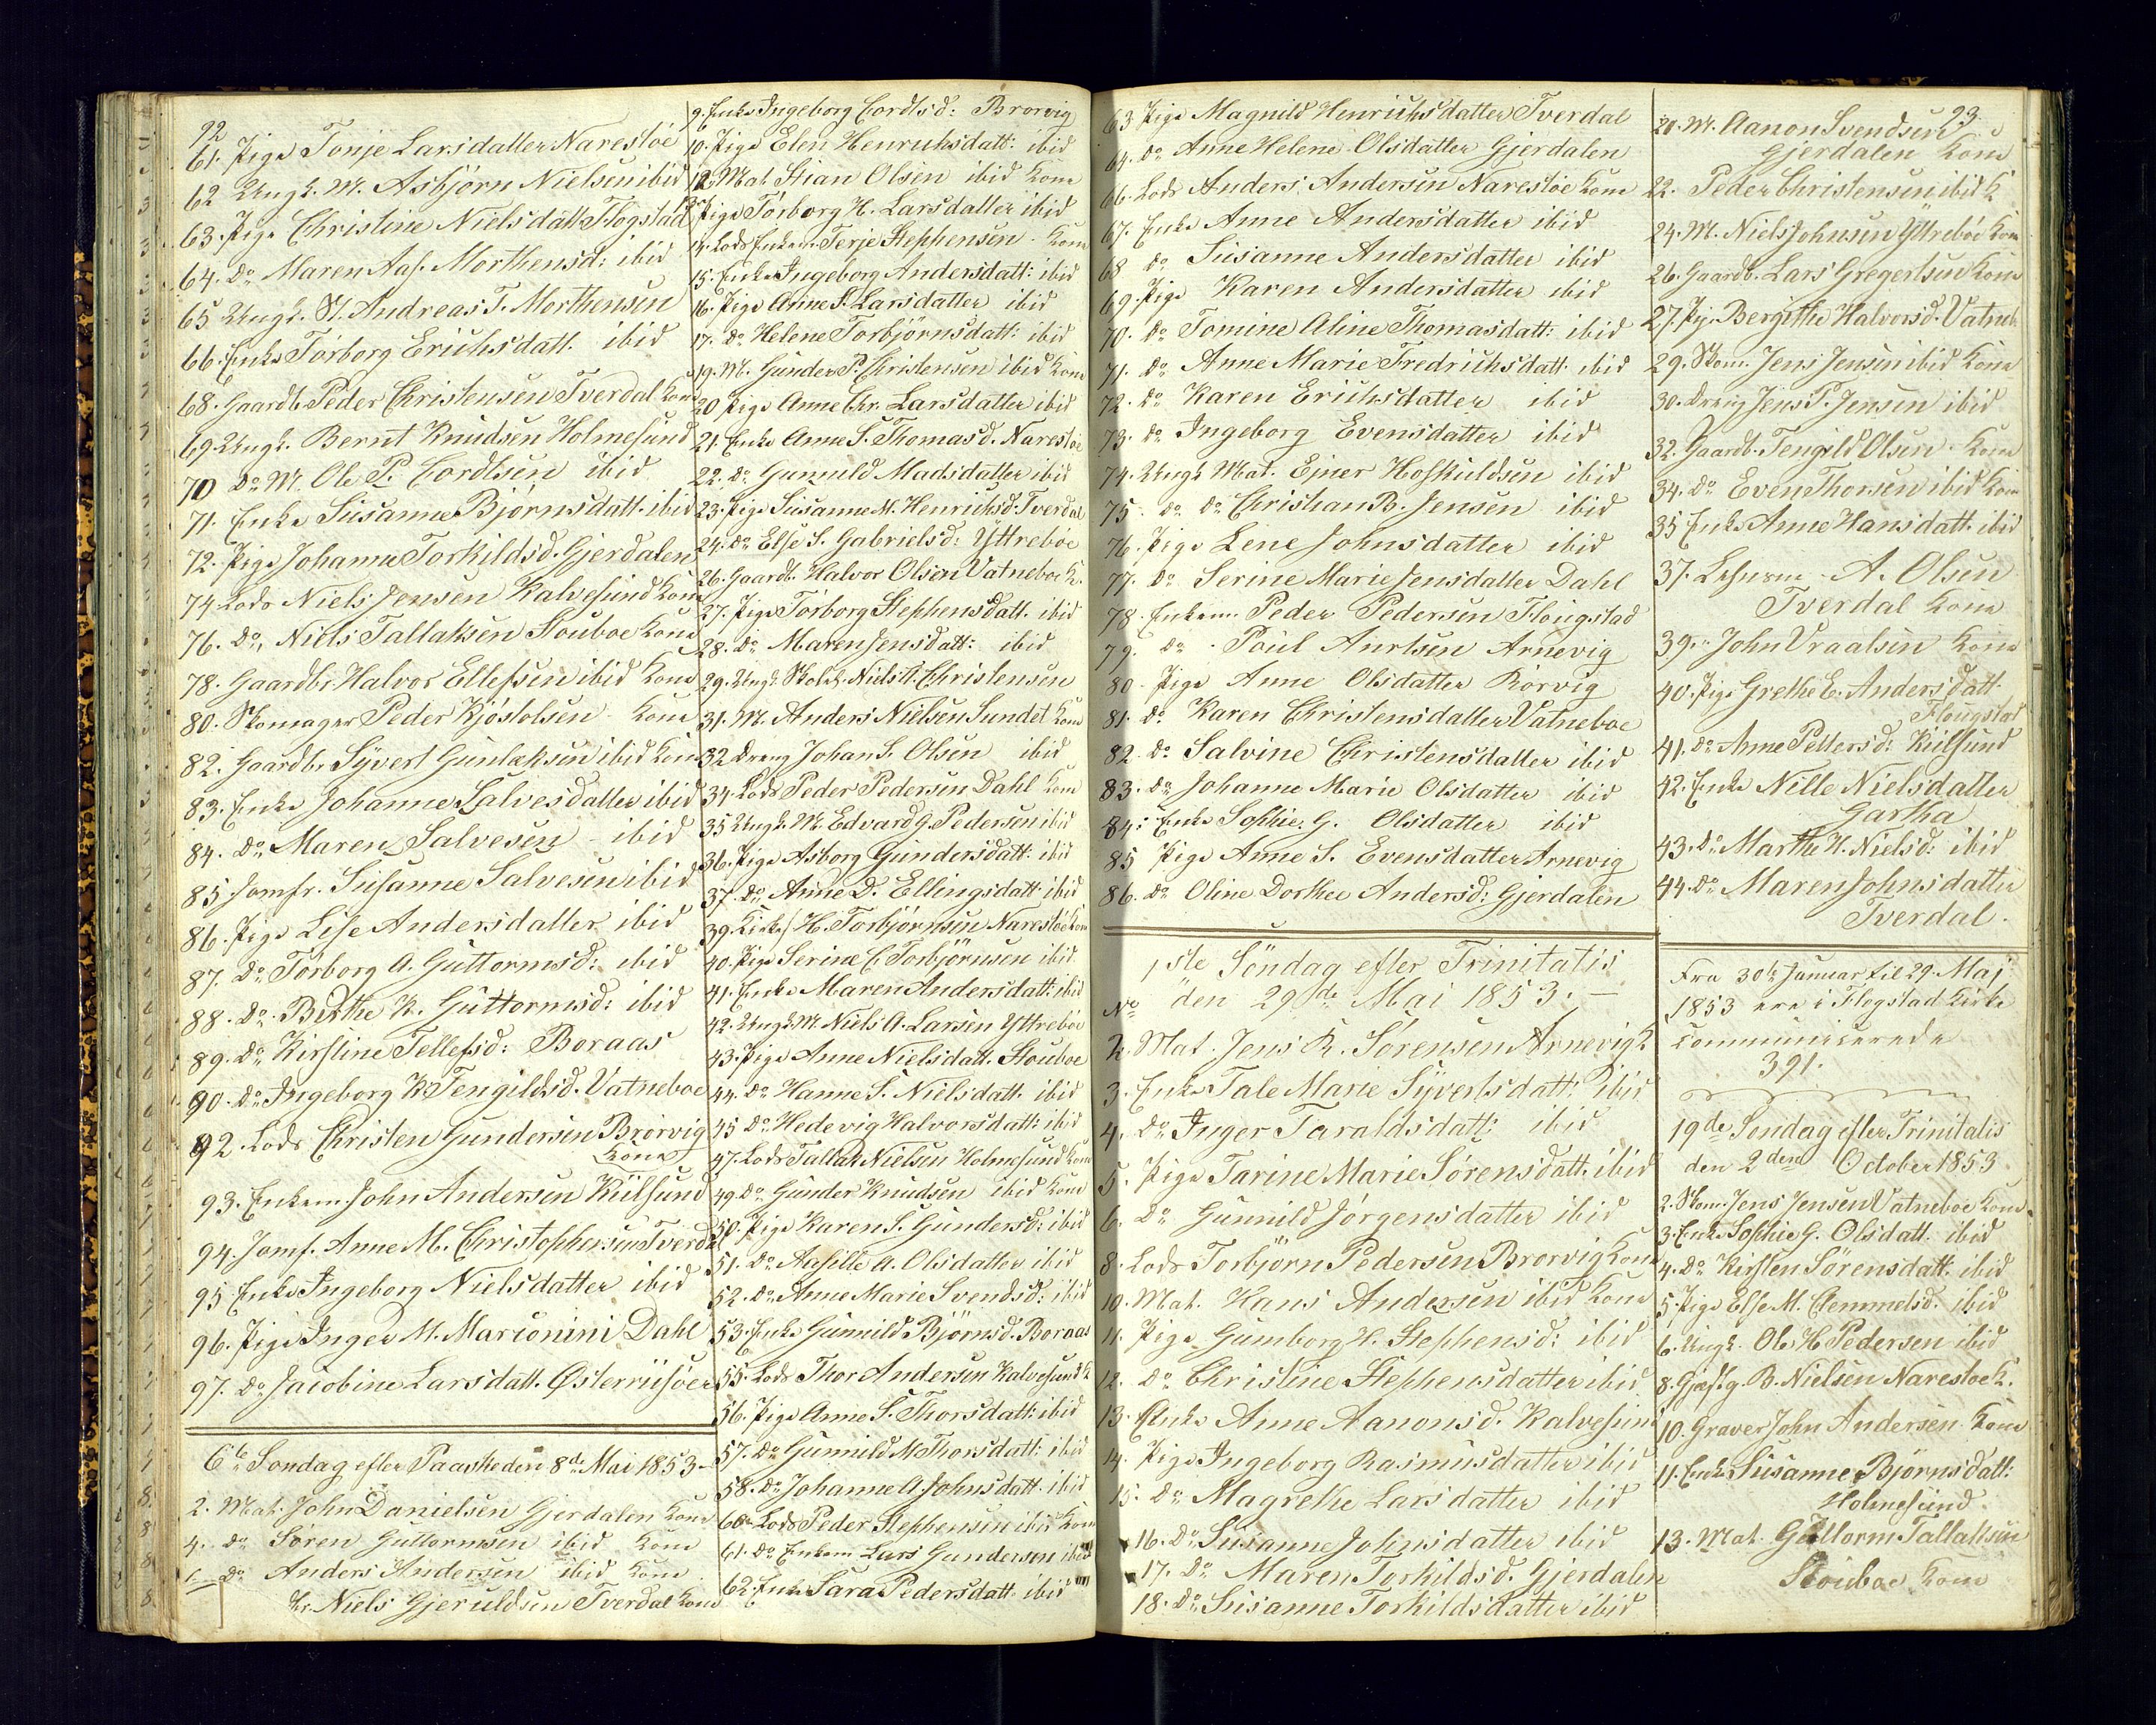 92
61. Pige Tonje Larsdatter Narestöe
62 Ungk. M. Asbjørn Nielsen ibid
63. Pige Christine Nielsdatt Flogstad
64. Do Maren Aas. Morthensd: ibid
65 Ungk. St. Andreas T. Morthensen
66. Enke Torborg Erichsdatt. ibid
68. Gaardb. Peder Christensen Tverdal Kone
69. Ungk. Bernt Knudsen Holmesund
70 Do M. Ole P. Cordtsen ibid
71. Enke Susanne Bjørnsdatt. ibid
72. Pige Johanne Torkildsd. Gjerdalen
74. Lods Niels Jensen Kalvesund Kone
76. Do, Niels Tallaksen Stouboe Kone
78. Gaardbr. Halvor Ellefsen ibid Kone
80. Skomager Peder Kjöstolsen - Kone
82. Gaardbr Syvert Gunlaksen ibid Kone
83. Enke Johanne Salvesdatter ibid
84. Do Maren Salvesen - ibid
85 Jomfr. Susanne Salvesen ibid
86. Pige Lise Andersdatter ibid
87. Do Torborg A. Guttormsd: ibid
88. Do Berthe K. Guttormsd: ibid
89. Do Kirstine Tellefsd: Boraas
90. Do Ingeborg K. Tengildsd. Vatneboe
92. Lods Christen Gundersen Brörvig
Kone
93. Enkem. John Andersen Kiilsund
94. Jomf. Anne M. Christophersen Tverdal
95 Enke Ingeborg Nielsdatter ibid
96. Pige Inger M. Marconini Dahl
97. Do Jacobine Larsdatt. Østerriisöer
6te Sondag efter Paaske den 8de Mai 1853 -
2. Mat. John Danielsen Gjerdalen Kone
4. do Sören Guttormsen ibid Kone
6 Do Anders Andersen ibid Kone
Niels Gjeruldsen Tverdal Kone
9. Enke Ingeborg Cordtsd: Brorvig
10. Pige Elen Henrichsdatt: ibid
12. Mat Stian Olsen ibid Kone
13. Pige Torborg H. Larsdatter ibid
14. Lods Enkem. Terje Stephensen - Kone
15. Enke Ingeborg Andersdatt: ibid
16. Pige Anne S. Larsdatter ibid
17. Do Helene Torbjörnsdatt: ibid
19. M. Gunder P. Christensen ibid Kone
20 Pige Anne Chr. Larsdatter ibid
21. Enke Anne S. Thomasd. Narestöe
22. Do Gunnild Madsdatter ibid
23. Pige Susanne M. Henrichsd. Tverdal
24. Do Else S. Gabrielsd: Yttreboe
26. Gaardb. Halvor Olsen Vatneboe K.
27. Pige Torborg Stephensdatt. ibid
28. Do Maren Jensdatt: ibid
29. Ungk. Skolel. Niels A. Christensen
31. M. Anders Nielsen Sundet Kone
32 Dreng Johan S. Olsen ibid
34. Lods Peder Pedersen Dahl Kone
35 Ungk. M. Edvard G. Pedersen ibid
36. Pige Asborg Gundersdatt: ibid
37. Do Anne D. Ellingsdatt: ibid
39. Kirkes. H. Torbjörnsen Narestöe Kone
40. Pige Serine C. Torbjörnsen ibid
41. Enke Maren Andersdatt: ibid
42. Ungk. M. Niels A. Larsen Yttreboe
43. Pige Anne Nielsdatt. Stouboe
44. Do Hanne S. Nielsdatt. ibid
45 Do Hedevig Halvorsdatt: ibid
47. Lods Tallak Nielsen Holmesund Kone
49. Do Gunder Knudsen ibid Kone
50. Pige Karen S. Gundersd: ibid
51. Do Aasille A. Olsdatter ibid
52. Do Anne Marie Svendsd: ibid
53. Enke Gunnild Björnsd. Boraas
55. Lods Thor Andersen Kalvesund K
56. Pige Anne S. Thorsdatt: ibid
57. Do Gunnild M. Thorsdatt: ibid
58. Do Johanne A. Johnsdatt. ibid
60. Lods Peder Stephensen ibid Kone
61. Do Enkem Lars Gundersen ibid
62. Enke Sara Pedersdatt. ibid
63 Pige Magnild Henrichsdatter Tverdal
64. Do Anne Helene Olsdatter Gjerdalen
66. Lods Anders Andersen Narestöe Kone
67. Enke Anne Andersdatter ibid
68 do Susanne Andersdatter ibid
69. Pige Karen Andersdatter ibid
70. Do Tomine Aline Thomasdatt: ibid
71. Do Anne Marie Fredrichsdatt: ibid
72. Do Karen Erichsdatter ibid
73. do Ingeborg Evensdatter ibid
74. Ungk Mat. Ejner Hoskuldsen ibid
75 - do do Christian B. Jensen ibid
76. Pige Lene Johnsdatter ibid
77. Do Serine Marie Jensdatter Dahl
78. Enkem. Peder Pedersen Flougstad
79. do - Poul Anrtsen Arnevig
80 - Pige Anne Olsdatter Rörvig
81. do Karen Christensdatter Vatneboe
82. Do Salvine Christensdatter ibid
83. Do Johanne Marie Olsdatter ibid
84: Enke Sophie G. Olsdatter ibid
85 Pige Anne S. Evensdatter Arnevig
86. Do Oline Dorthee Andersd: Gjerdalen
1ste Söndag efter Trinitatis
den 29de Mai 1853. -
No
2. Mat. Jens K. Sörensen Arnevig K
3. Enke Tale Marie Syvertsdatt: ibid
4. Do Inger Taraldsdatt: ibid
5. Pige Tarine Marie Sörensdatt. ibid
6. Do Gunnild Jörgensdatter ibid
8. Lods Torbjörn Pedersen Brorvig Kone
10. Mat. Hans Andersen ibid Kone
11. Pige Gumborg H. Stephensd: ibid
12. Do Christine Stephensdatter ibid
13. Enke Anne Aanonsd. Kalvesund
14. Pige Ingeborg Rasmusdatter ibid
15. Do Magrethe Larsdatter ibid
16. Do Susanne Johnsdatter ibid
17. Do Maren Torkildsd. Gjerdalen
18. Do Susanne Torkildsdatter ibid
93
20. M. Aanon Svendsen
Gjerdalen Kone
22. Peder Christensen ibid K
24. M. Niels Johnsen Yttreböe Kone
26. Gaardb. Lars Gregertsen Kone
27. Pig. Bergithe Halvorsd. Vatneb.
29. Skom. Jens Jensen ibid Kone
30. Dreng Jens P. Jensen ibid
32. Gaardb. Tengild Olsen - Kone
34. Do Even Thorsen ibid Kone
35 Enke Anne Hansdatt. ibid
37. A. Olsen
Tverdal Kone
39. John Vraalsen Kone
40. Pige Grethe E. Andersdatt.
Flougstad
41. Do Anne Pettersd: Kiilsund
42. Enke Nille Nielsdatter
Gartha
43. Do Marthe H. Nielsd: ibid
44. Do Maren Johnsdatter
Tverdal.
Fra 30te Januar til 29. Maj
1853 ere i Flogstad Kirke
communicerede
391.
19de Söndag efter Trinitatis
den 2den October 1853
2. Skom. Jens Jensen Vatneboe Kone
3. Enke Sophie G. Olsdatt. ibid
4. Do Kirsten Sörensdatt. ibid
5. Pige Else M. Clemmetsd. ibid
6. Ungk. Ole H. Pedersen ibid
8. Gjæstg. B. Nielsen Narestoe K.
10. Graver John Andersen Kone
11. Enke Susanne Björnsdatt:
Holmesund
13. Mat. Guttorm Tallaksen
Stouboe Kone